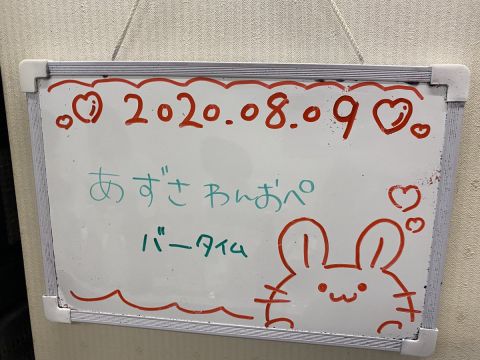 2020.08.09
あずさ わんおぺ
バータイム